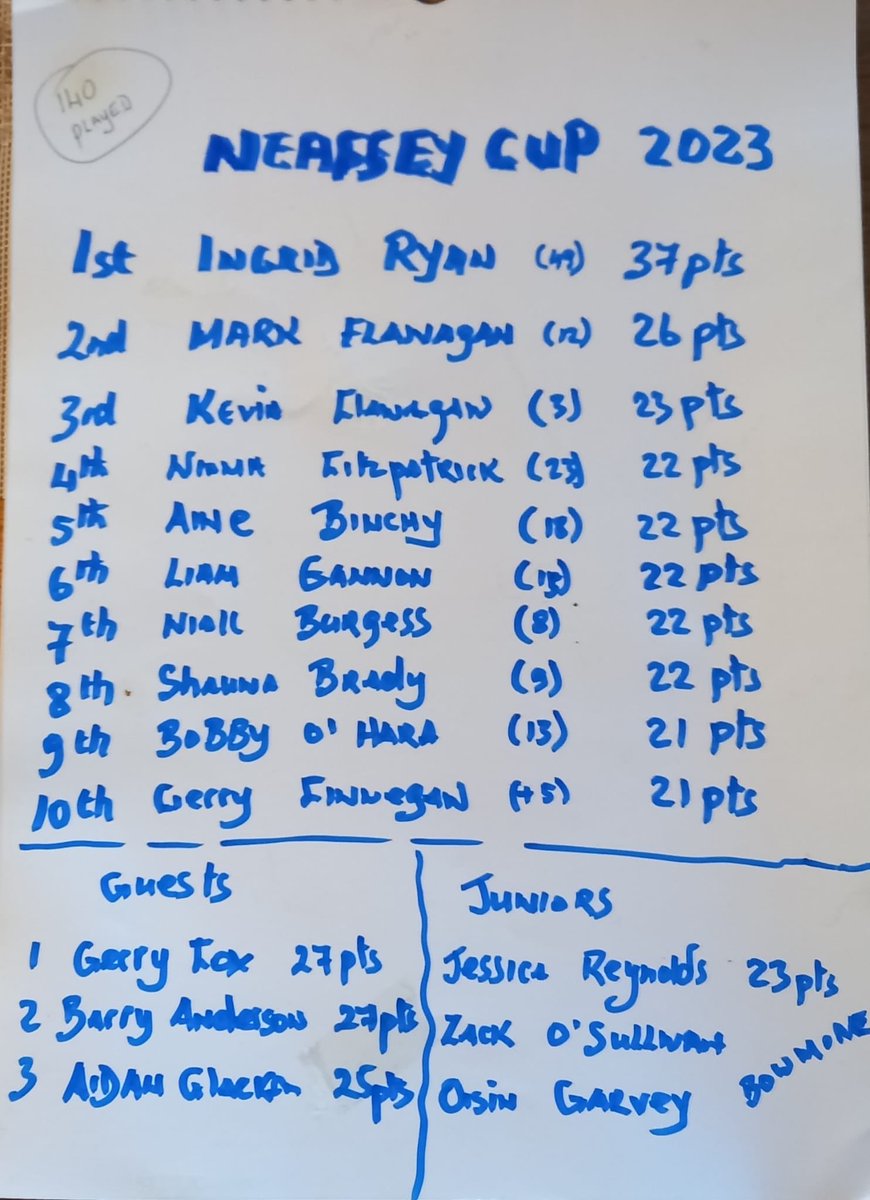 140
PLAYED
NEAFSEY CUP 2023
1st INGRID RYAN (49) 37pts
2nd MARK FLANAGAN (12) 26 pts
3rd KEVIN FLANAGAN (3) 23 pts
4th NIAMH FITZPATRICK (23) 22 pts
5th AINE BINCHY (18) 22 pts
6th LIAM GANNON (15) 22 pts
7th NIALL BURgESS (8) 22 pts
8th SHAUNA BRADy (9) 22 pts
9th BOBBY O'HARA (13) 21 pts
10th Gerry FINNEGAN (+5) 21 pts
Guests
1 Gerry Fox 27pts
2 Barry Anderson 27pts
3 AIDAN 25pts
JUNIORS
Jessica Reynolds 23pts
ZACK O'SULLIVAN
Oisin GARVEy
BOWMORE